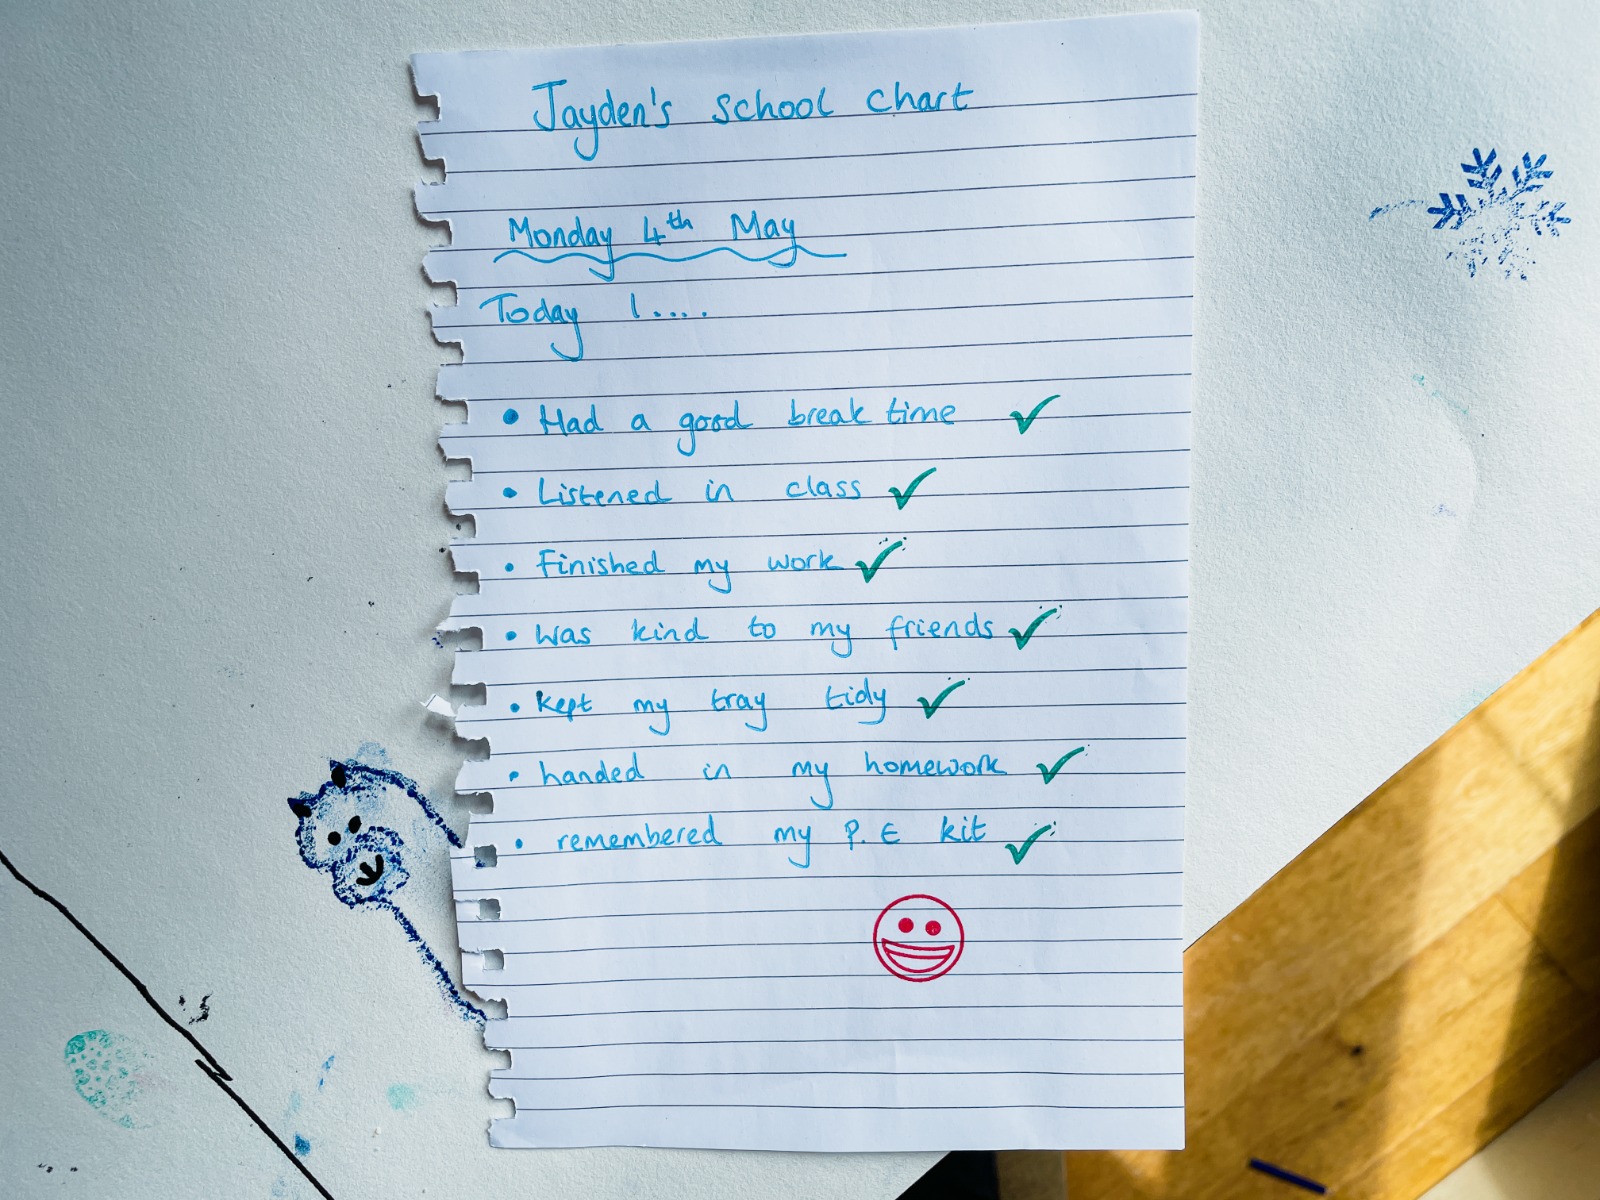 Jayden's school chart
Monday 4th May
Today I....
• Had a good break time ✓
• Listened in class ✓
• Finished my work ✓
• was kind to my friends ✓
• kept my tray tidy ✓
• handed in my homework ✓
• remembered my P.E kit ✓